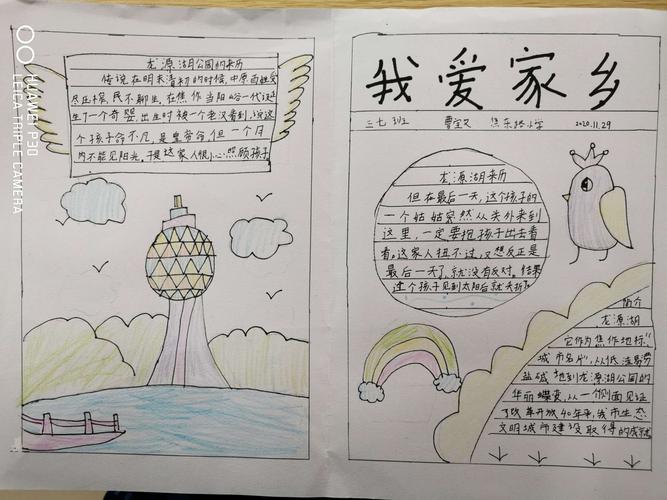 HUAWEI P30
LEICA TRIPLE CAMERA
龙源湖公园的来历
传说在明末清初的时候,中原百姓受
尽压榨,民不聊生,在焦作当阳峪一代诞
生了一个奇婴,出生时被一个老汉看到,说这
个孩子命不凡,是皇帝命,但一个月
内不能见阳光。于是这家人很小心照顾孩子
我爱家乡
三七班
焦东路小学
2020.11.29
龙源湖来历
但在最后一天,这个孩子的
一个姑姑突然从关外来到
这里,一定要抱孩子出去看
看。这家人扭不过,又想反正是
最后一天了,就没有反对。结果
这个孩子见到太阳后就夭折了
简介
龙源湖
它作为焦作地标,"
城市名片",从低洼易涝
盐碱地到龙源湖公园的
华丽蝶变,从一个侧面见证
了改革开放40年来,我市生态
文明城市建设取得的成就